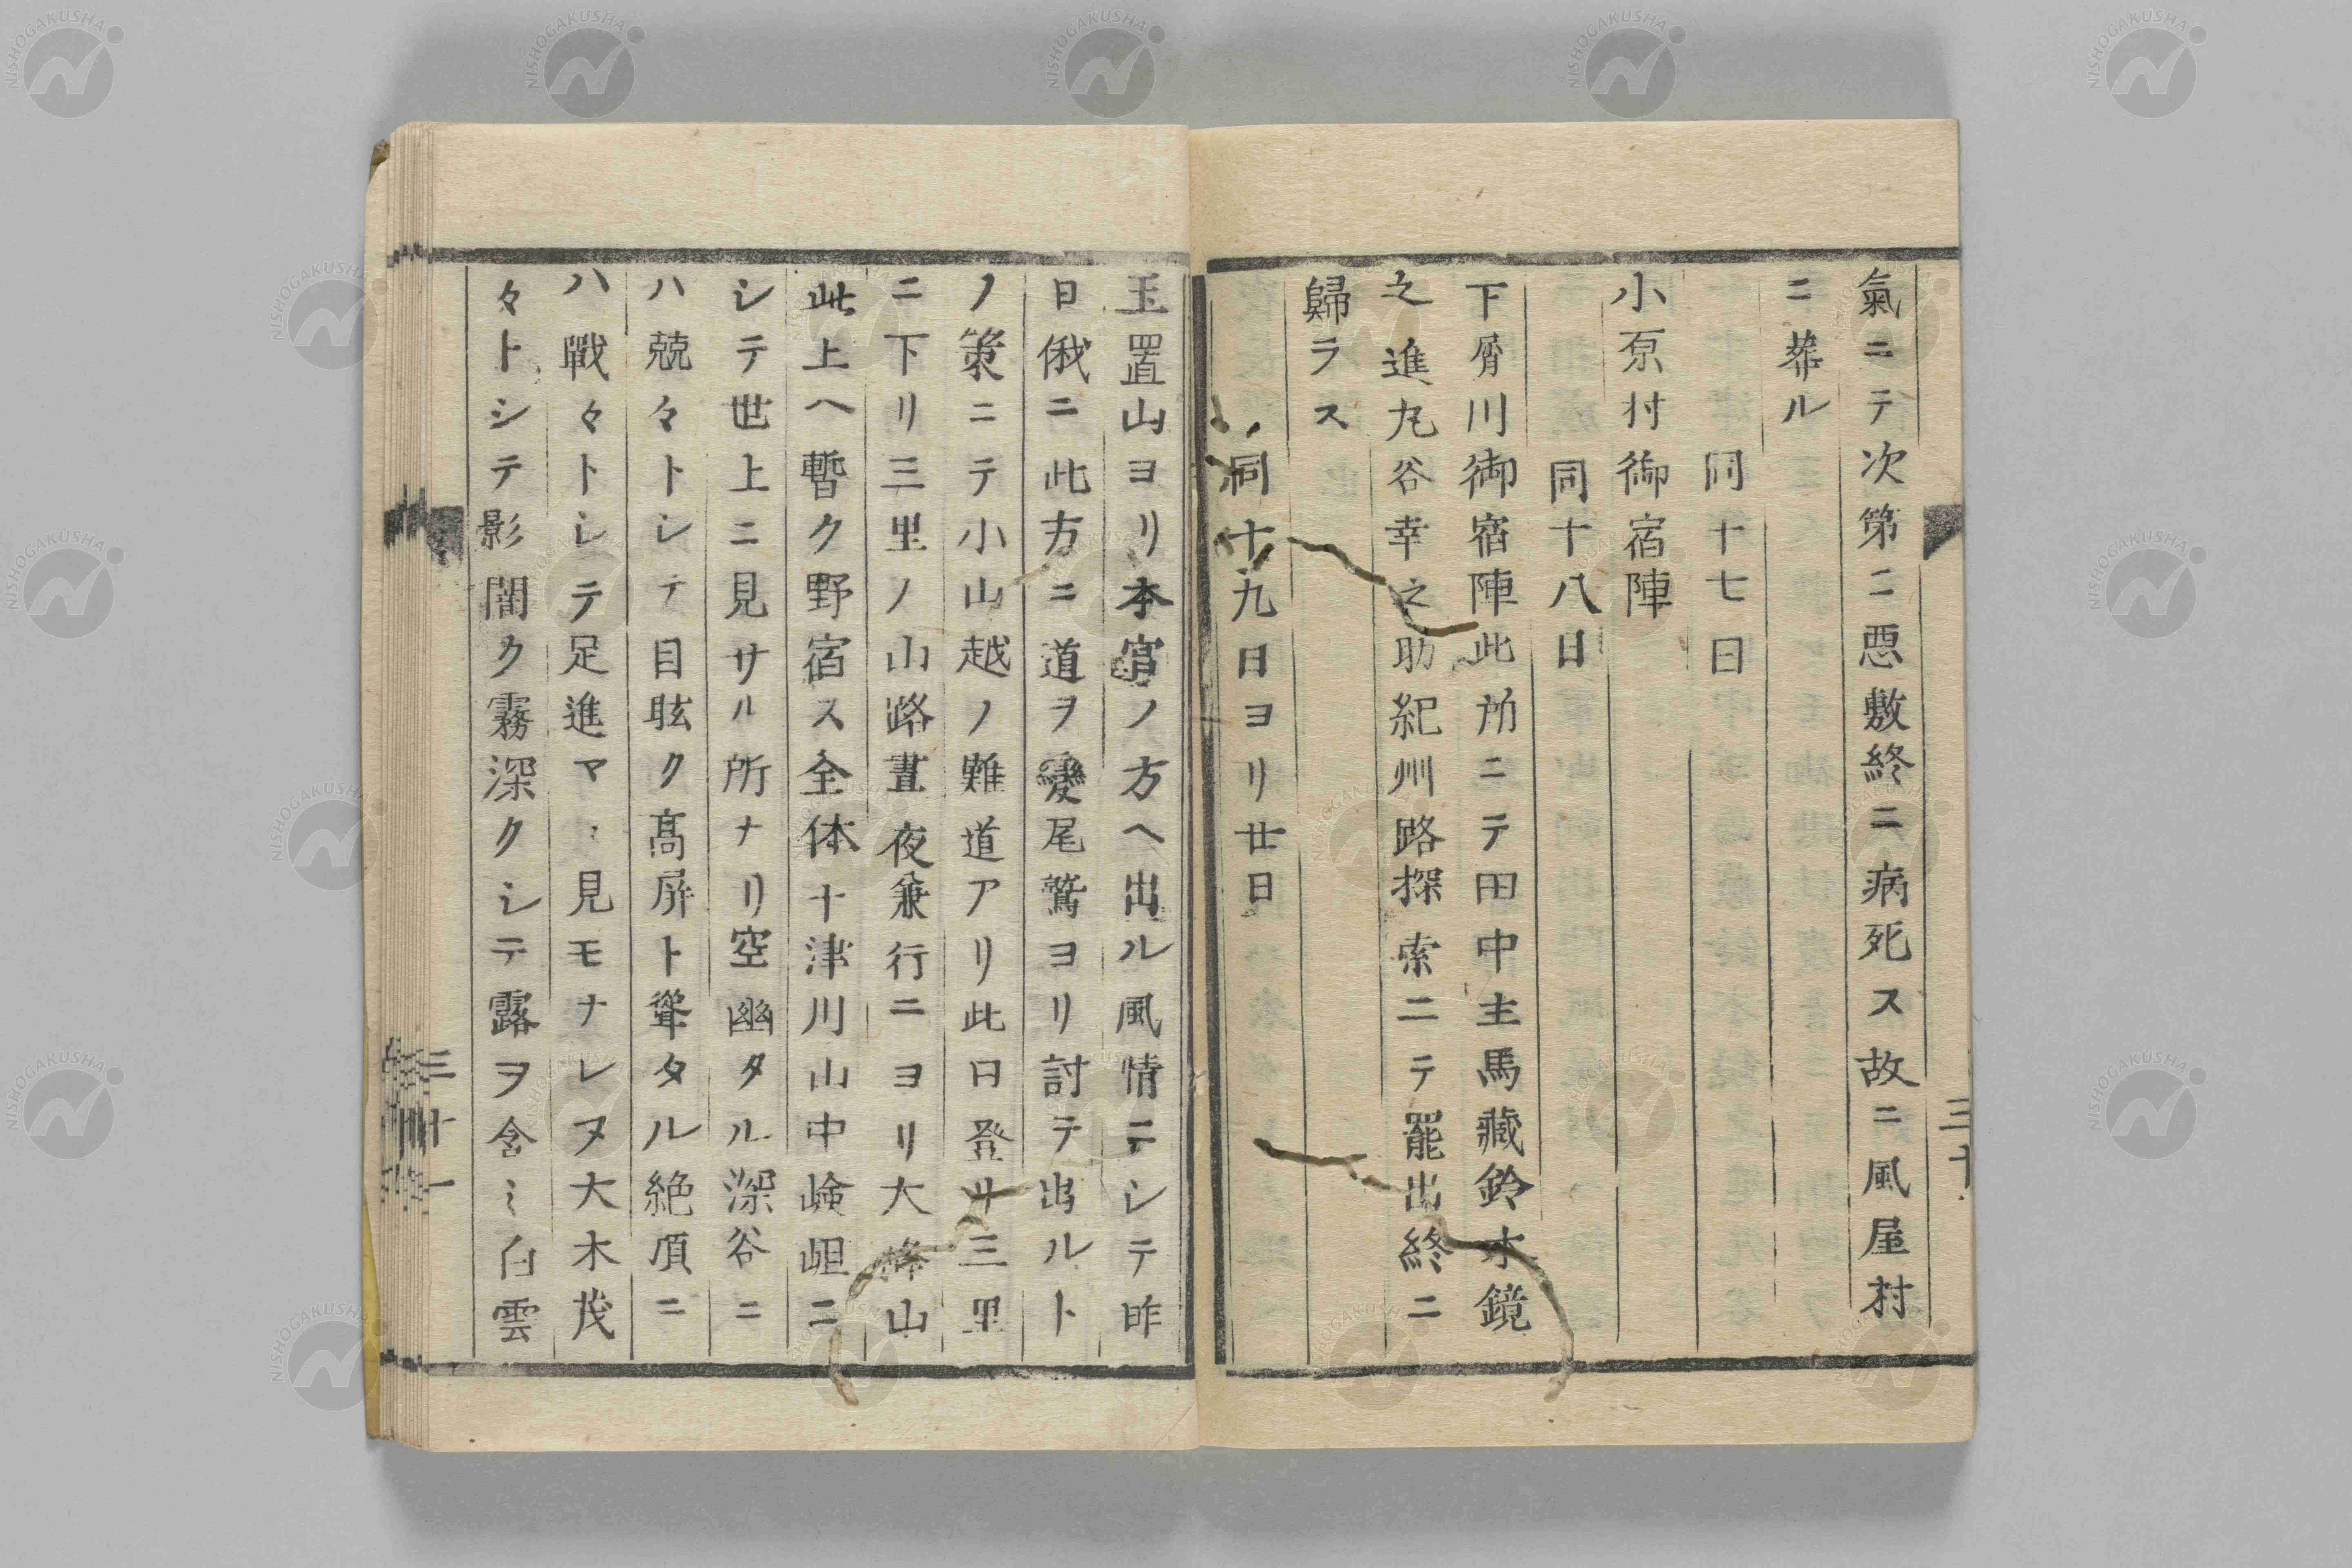 氣ニテ次第ニ悪敷終ニ病死ス故ニ風屋村
ニ葬ル
同十七日
小原村御宿陣
同十八日
下屑川御宿陣此所ニテ田中主馬藏鈴木鏡
之進九谷幸之助紀州路探索ニテ罷出終ニ
歸ラス
同十九日ヨリ廿日
三十
玉置山ヨリ本宮ノ方ヘ出ル風情ニシテ昨
日俄ニ此方ニ道ヲ変尾鷲ヨリ討テ出ルト
ノ策ニテ小山越ノ難道アリ此日登リ三里
ニ下リ三里ノ山路晝夜兼行ニヨリ大峰山
此上ヘ暫ク野宿ス全体十津川山中嶮岨ニ
シテ世上ニ見サル所ナリ空幽タル深谷ニ
ハ兢々トシテ目眩ク髙屏ト聳タル絶頂ニ
ハ戰々トシテ足進マヽ見モナレヌ大木茂
々トシテ影闇ク霧深クシテ露ヲ含ミ白雲
三十一
NISHOGAKUSHA